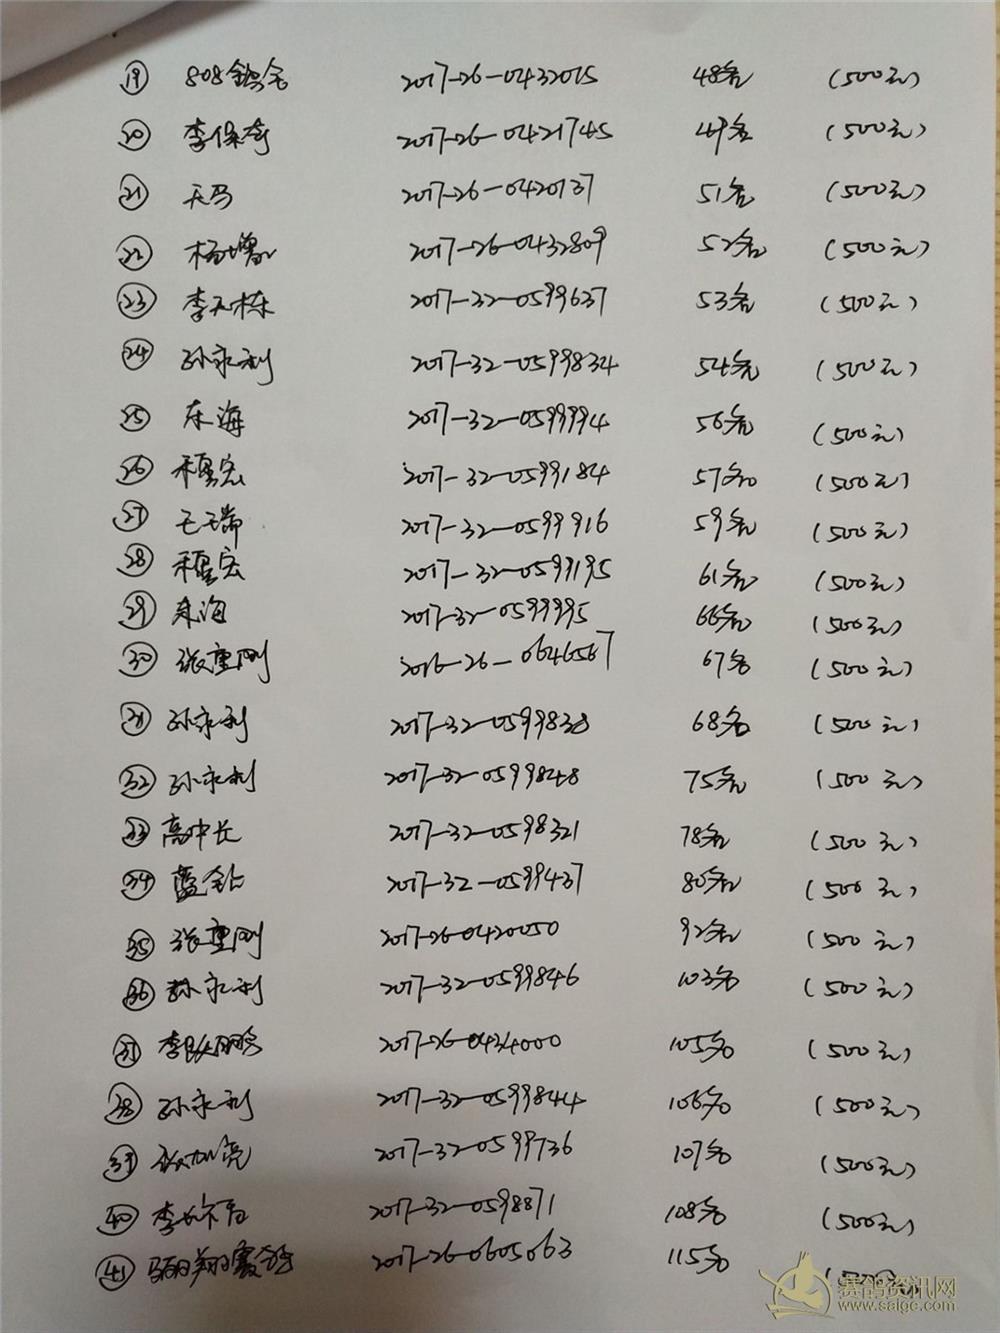 ⑲ 808鸽舍 2017-26-0432015 48名 (500元)
⑳ 李保奇 2017-26-0421745 49名 (500元)
㉑ 天马 2017-26-0420137 51名 (500元)
㉒ 杨增 2017-26-0432809 52名 (500元)
㉓ 李天栋 2017-32-0599637 53名 (500元)
㉔ 孙永利 2017-32-0599834 54名 (500元)
㉕ 东海 2017-32-0599994 56名 (500元)
㉖ 穆宏 2017-32-0599184 57名 (500元)
㉗ 王瑞 2017-32-0599916 59名 (500元)
㉘ 穆宏 2017-32-0599195 61名 (500元)
㉙ 东海 2017-32-0599995 66名 (500元)
㉚ 张重刚 2016-26-0646567 67名 (500元)
㉛ 孙永利 2017-32-0599838 68名 (500元)
㉜ 孙永利 2017-32-0599848 75名 (500元)
㉝ 高中长 2017-32-0598321 78名 (500元)
㉞ 蓝钻 2017-32-0599437 80名 (500元)
㉟ 张重刚 2017-26-0420050 92名 (500元)
㊱ 孙永利 2017-32-0599846 103名 (500元)
㊲ 李跃鹏 2017-26-0434000 105名 (500元)
㊳ 孙永利 2017-32-0599844 106名 (500元)
㊴ 张加亮 2017-32-0599736 107名 (500元)
㊵ 李 2017-32-0598871 108名 (500元)
㊶ 翔赛鸽 2017-26-0605063 115名 (500元)
赛鸽资讯网
www.saige.com